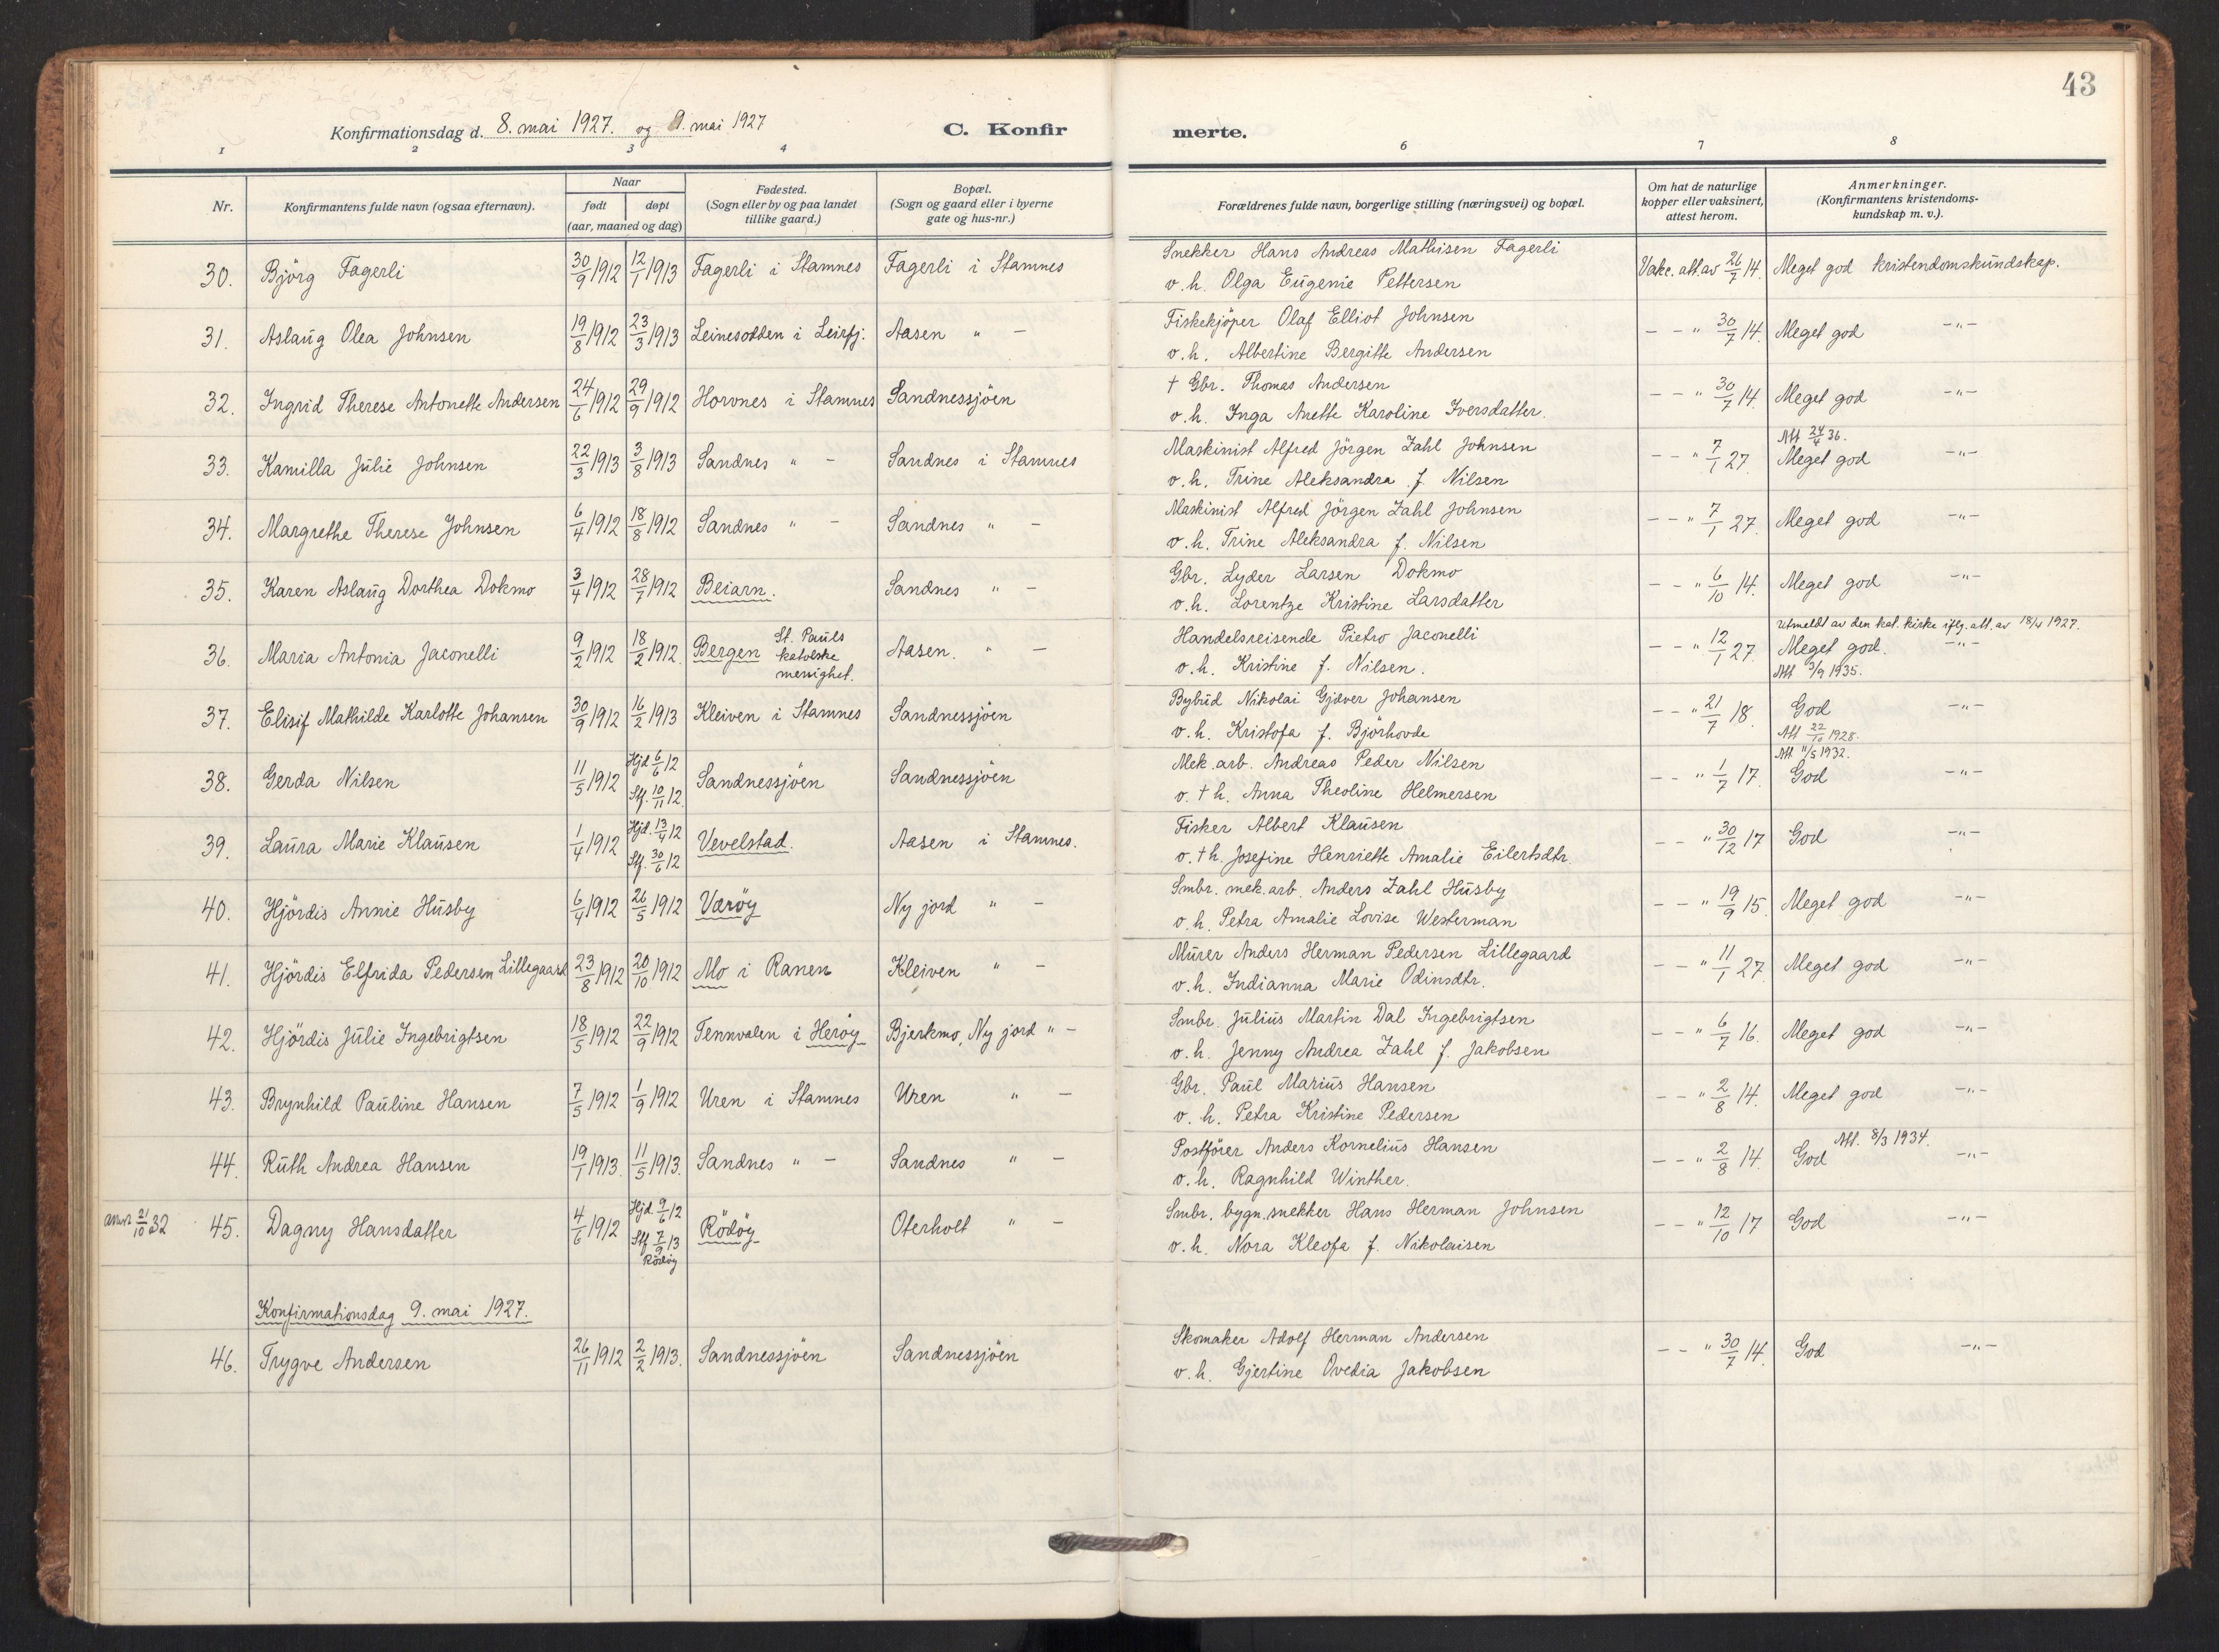 43
Konfirmationsdag d. 8. mai 1927. og 9. mai 1927
C. Konfirmerte.
1 2 3 4 6 7 8
Nr.
Konfirmantens fulde navn (ogsaa efternavn).
Naar
født
døpt
(aar, maaned og dag)
Fødested.
(Sogn eller by og paa landet
tillike gaard.)
Bopæl.
(Sogn og gaard eller i byerne
gate og hus-nr.)
Forældrenes fulde navn, borgerlige stilling (næringsvei) og bopæl.
Om hat de naturlige
kopper eller vaksinert,
attest herom.
Anmerkninger.
(Konfirmantens kristendoms-
kundskap m. v.).
30. Björg Fagerli 30/9 1912 12/1 1913 Fagerli i Stamnes Fagerli i Stamnes Snekker Hans Andreas Mathisen Fagerli
o. h. Olga Eugenie Pettersen Vakc. att. av 26/7 14. Meget god kristendomskundskap.
31. Aslaug Olea Johnsen 19/8 1912 23/3 1913 Leinesodden i Leirfj. Aasen " – Fiskekjöper Olaf Elliot Johnsen
o. h. Albertine Bergitte Andersen – – " 30/7 14. Meget god –"–
32. Ingrid Therese Antonette Andersen 24/6 1912 29/9 1912 Horvnes i Stamnes Sandnessjöen † Gbr. Thomas Andersen
o. h. Inga Anette Karoline Iversdatter. – – " 30/7 14. Meget god –"–
33. Kamilla Julie Johnsen 22/3 1913 3/8 1913 Sandnes " – Sandnes i Stamnes Maskinist Alfred Jörgen Zahl Johnsen
o. h. Trine Aleksandra f. Nilsen – – " 7/1 27. Att 24/4 36.
Meget god –"–
34. Margrethe Therese Johnsen 6/4 1912 18/8 1912 Sandnes " – Sandnes " – Maskinist Alfred Jörgen Zahl Johnsen
o. h. Trine Aleksandra f. Nilsen – – " 7/1 27. Meget god –"–
35. Karen Aslaug Dorthea Dokmo 3/4 1912 28/7 1912 Beiarn. Sandnes " – Gbr. Lyder Larsen Dokmo
o. h. Lorentze Kristine Larsdatter – – " 6/10 14. Meget god –"–
36. Maria Antonia Jaconelli 9/2 1912 18/2 1912. Bergen St. Pauls
katolske
menighet. Aasen. " – Handelsreisende Pietro Jaconelli
o. h. Kristine f. Nilsen. – – " 12/1 27. Utmeldt av den kat. kirke iflg. att. av 18/4 1927.
Meget god. –"–
Att 3/9 1935.
37. Elisif Mathilde Karlotte Johansen 30/9 1912 16/2 1913 Kleiven i Stamnes Sandnessjöen Bybud Nikolai Gjæver Johansen
o. h. Kristofa f. Björhovde – – " 21/7 18. God –"–
Att 22/10 1928.
38. Gerda Nilsen 11/5 1912 Hjd 6/6 12
Stf. 10/11 12. Sandnessjöen Sandnessjöen Mek. arb. Andreas Peder Nilsen
o. † h. Anna Theoline Helmersen – – " 1/7 17. Att 11/5 1932.
God –"–
39. Laura Marie Klausen 1/4 1912 Hjd. 13/4 12
Stf. 30/6 12 Vevelstad. Aasen i Stamnes. Fisker Albert Klausen
o. † h. Josefine Henriette Amalie Eilertsdtr. – – " 30/12 17 God –"–
40. Hjördis Annie Husby 6/4 1912 26/5 1912 Væröy Ny jord " – Smbr. mek. arb. Anders Zahl Husby
o. h. Petra Amalie Lovise Westerman – – " 19/9 15. Meget god –"–
41. Hjördis Elfrida Pedersen Lillegaard 23/8 1912 20/10 1912 Mo i Ranen Kleiven " – Murer Anders Herman Pedersen Lillegaard
o. h. Indianna Marie Odinsdtr. – – " 11/1 27. Meget god –"–
42. Hjördis Julie Ingebrigtsen 18/5 1912 22/9 1912 Tennvalen i Heröy Bjerkmo, Ny jord " – Smbr. Julius Martin Dal Ingebrigtsen
o. h. Jenny Andrea Zahl f. Jakobsen – – " 6/7 16. Meget god –"–
43. Brynhild Pauline Hansen 7/5 1912 1/9 1912 Uren i Stamnes Uren " – Gbr. Paul Marius Hansen
o. h. Petra Kristine Pedersen – – " 2/8 14. Meget god –"–
44. Ruth Andrea Hansen 19/1 1913. 11/5 1913. Sandnes " – Sandnes " – Postförer Anders Kornelius Hansen
o. h. Ragnhild Winther. – – " 2/8 14. God Att. 8/3 1934. –"–
21/10 32 45. Dagny Hansdatter 4/6 1912 Hjd. 9/6 12
Stf 7/9 13
Rödöy Rödöy Oterholt " – Smbr. bygn. snekker Hans Herman Johnsen
o. h. Nora Kleofa f. Nikolaisen – – " 12/10 17 God –"–
Konfirmationsdag 9. mai 1927.
46. Trygve Andersen 26/11 1912 2/2 1913. Sandnessjöen Sandnessjöen Skomaker Adolf Herman Andersen
o. h. Gjertine Ovedia Jakobsen – – " 30/7 14. God –"–